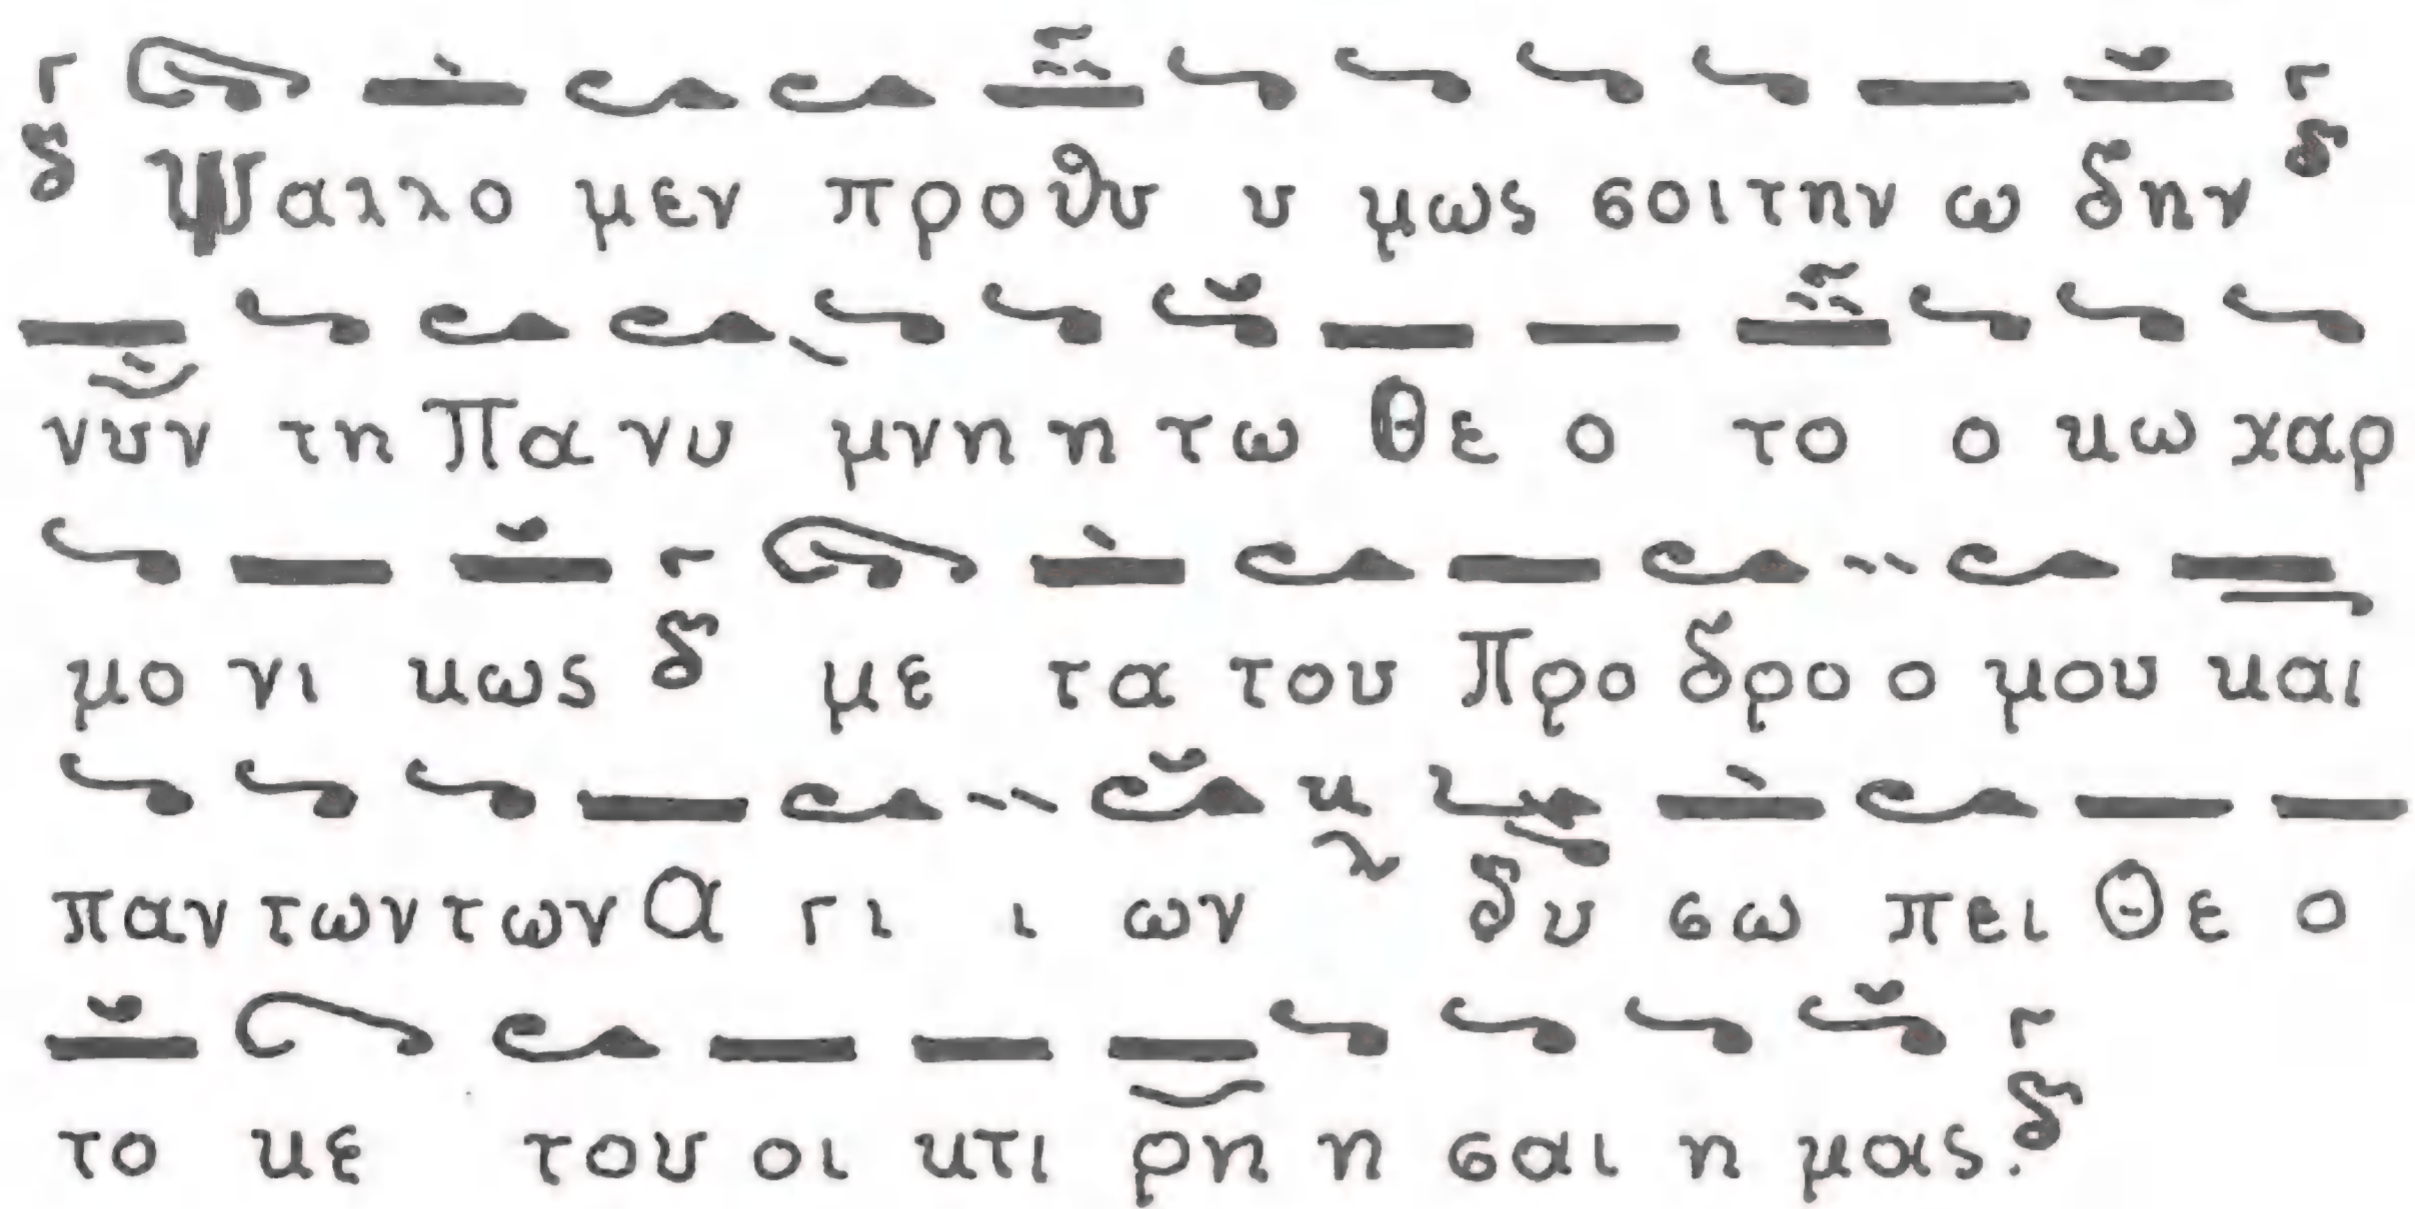 δ Ψαλλο μεν προθυ υ μως σοι την ω δην δ
νυν τη Πα νυ μνη η τω Θε ο το ο κω χαρ
μο νι κως δ με τα του Προ δρο ο μου και
παν των των Α γι ι ων δυ σω πει Θε ο
το κε του οι κτι ρη η σαι η μας. δ